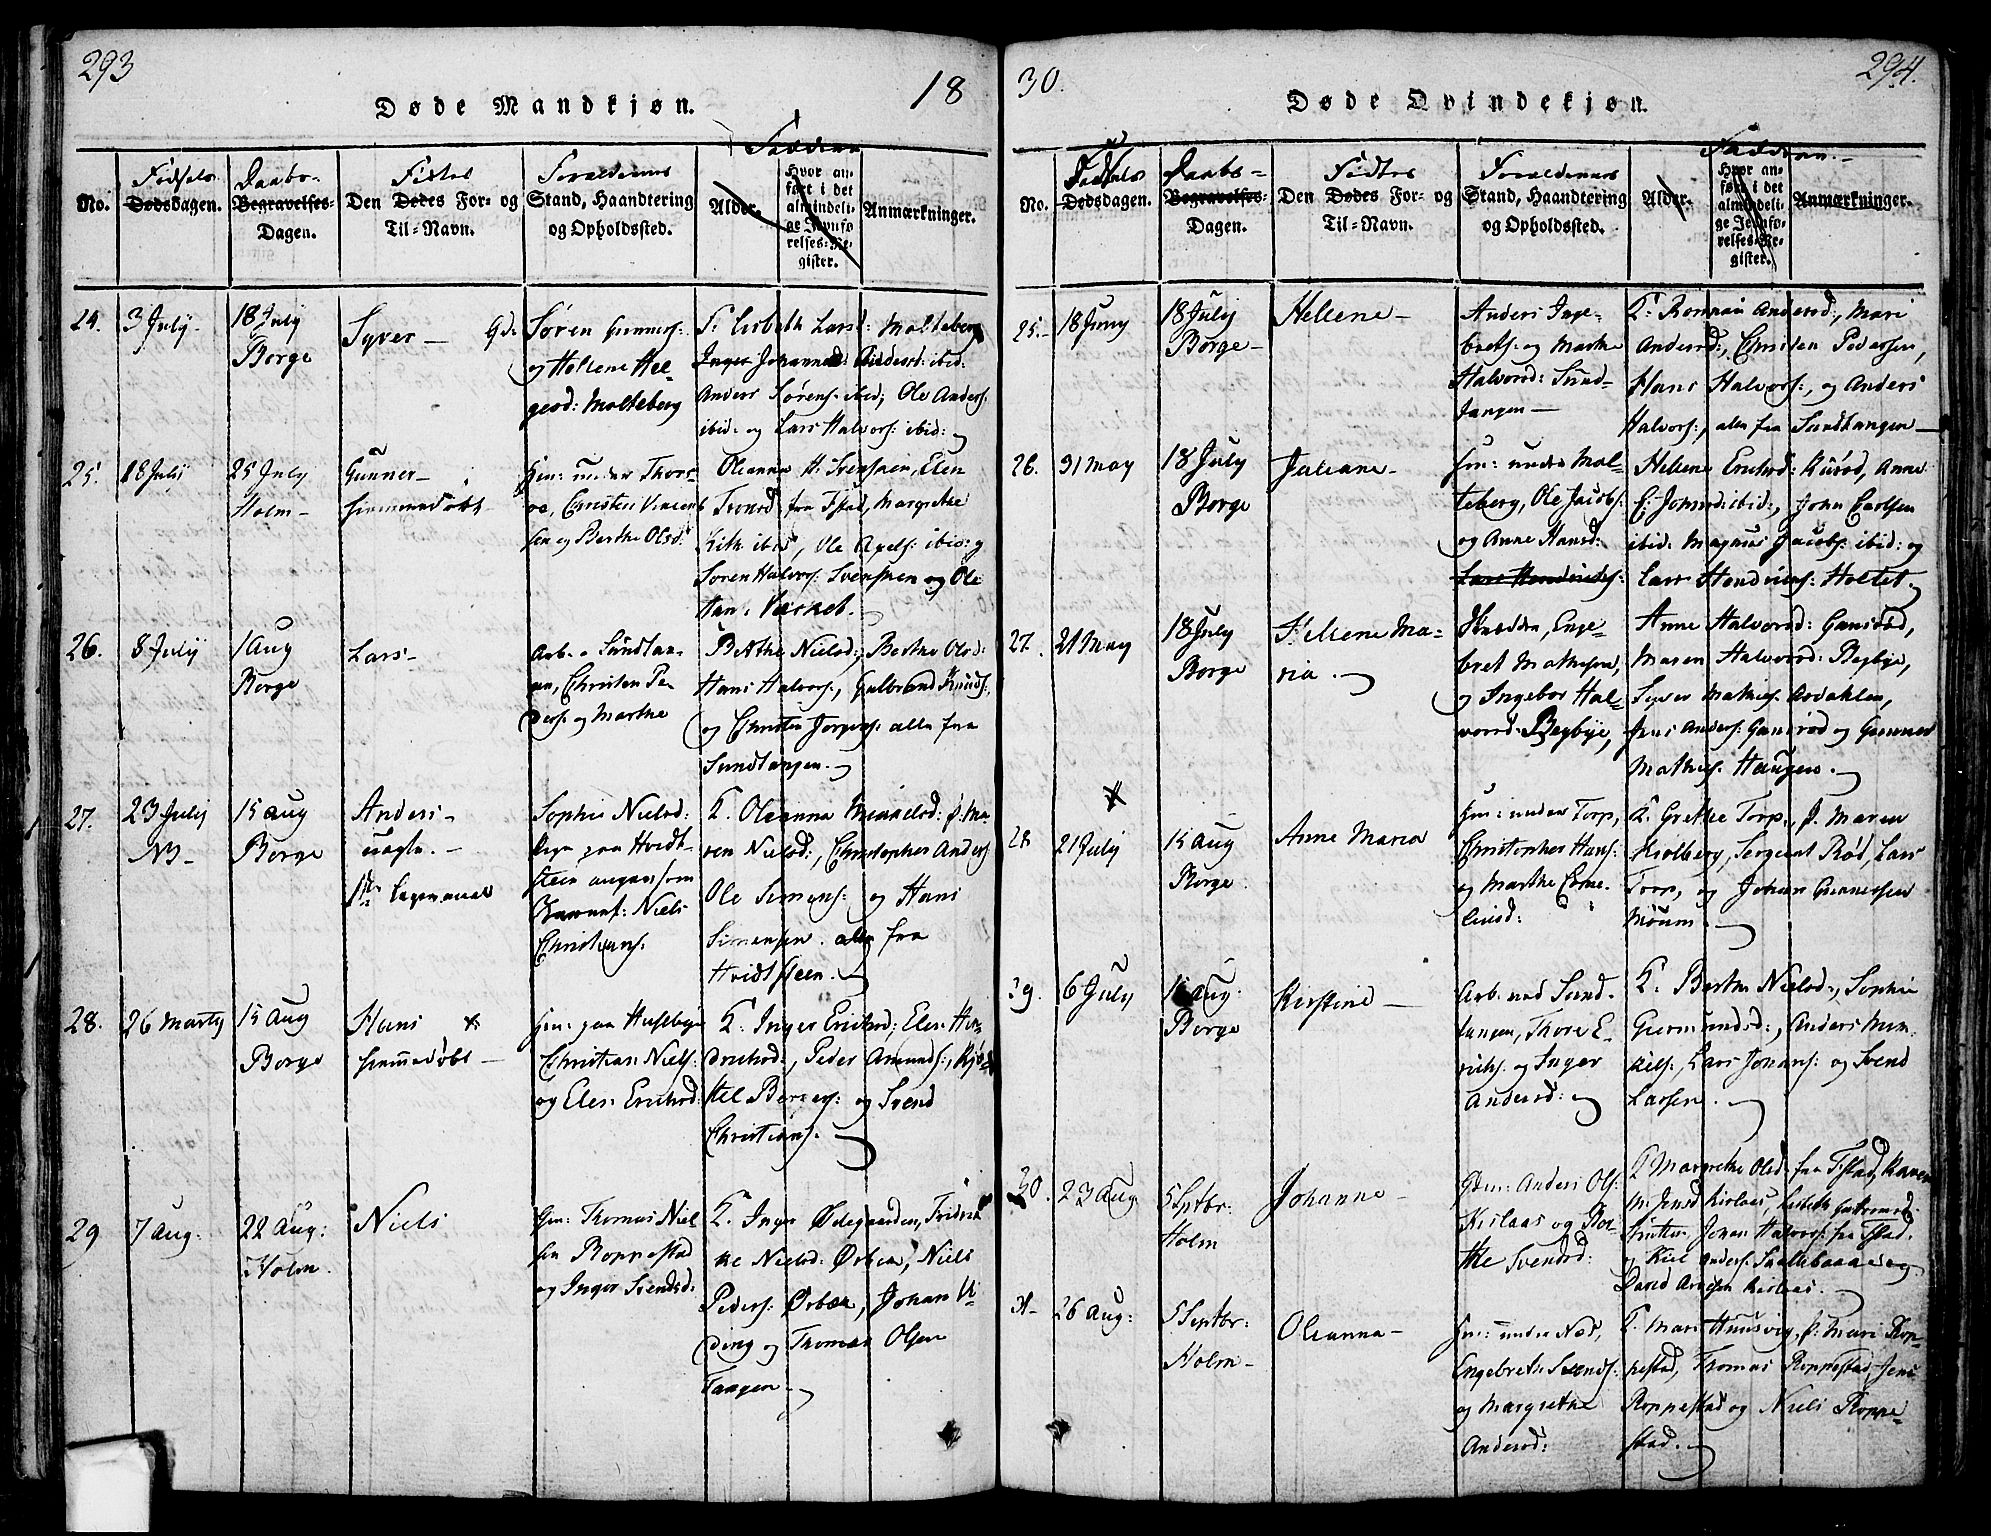 293
18
Døde Mandkjøn.
No.
Fødsels
Dødsdagen.
Daabs-
Begravelses-
Dagen.
Fødtes
Den Dødes For- og
Til-Navn.
Forældrenes
Stand, Haandtering
og Opholdssted.
Faddere
Alder.
Hvor an-
ført i det
almindeli-
ge Jevnfø-
relses-Re-
gister.
Anmærkninger.
24.
3 July
18 July
Borge
Syver
Søren Gunners:
og Hellene Hel-
gesd: Molteberg
F: Lisbeth Larsd: Molteberg
Inger Johannesd: Andersd: ibid:
Anders Sørens: ibid; Ole Anders:
ibid: og Lars Halvors: ibid:
25.
18 July
25 July
Holm
Gunner
hjemmedøbt
Huus: under Thors-
Christen Vincent
sen og Berthe Olsd:
Oleanna H. Svenssen, Elen
fra Istad, Margrethe
ibid, Ole Axels: ibid: og
Soren Halvors: Svenssen og Ole
Han:
26.
8 July
1 Aug
Borge
Lars
Arb. i Sundtan-
gen, Christen Pe-
ders: og Marthe
Berthe Nielsd:, Berthe Olsd:
Hans Halvors:, Gulbrand Knuds:,
og Christen Jørgens: alle fra
Sundtangen.
27.
23 July
NB
15 Aug
Borge
Anders
uægte.
1ste Leiermaal
Sophie Nielsd:
Pige paa Hvidt-
steen angav som
Barnef: Niels
Christians:
F. Oleanna Mikkelsd: p: Ma-
ren Nielsd:, Christopher Anders:
Ole Simens: og Hans
Simensen. alle fra
Hvidtsteen.
28.
26 Marty
15 Aug
Borge
Hans
hjemmedøbt
Huus: paa
Christian Niels:
og Elen Erichsd:
F. Inger Erichsd; Elen Hen-
drichsd:, Peder Amunds:,
og Svend
Christians:
29
7 Aug:
22 Aug:
Holm
Niels
Huus: Thomas Niel
sen Roppestad
og Inger Svendsd:
F. Inger Ødegaarden, Fridrik
ke Nielsd: Ørbek, Niels
Peders: Ørbek, Johan U-
ding og Thomas Olsen
Tangen
30.
294.
Døde Qvindekjøn.
No.
Fødsels
Dødsdagen.
Daabs-
Begravelses-
Dagen.
Fødtes
Den Dødes For- og
Til-Navn.
Forældrenes
Stand, Haandtering
og Opholdssted.
Faddere
Alder.
Hvor an-
ført i det
almindeli-
ge Jevnfø-
relses-Re-
gister.
Anmærkninger.
25.
18 Juny
18 July
Borge
Hellene
Anders Inge-
brets: og Marthe
Halvorsd: Sund-
tangen
F: Andersd:, Mari
Andersd:, Christen Pedersen,
Hans Halvors:, og Anders
Halvors:, alle fra Sundtangen
26.
31 May
18 July
Borge
Juliane
Huus: under Mol-
teberg, Ole Jacobs:
og Anne Hansd:
Lars Hendrichs:
Hellene Erichsd: Anne
C: Johnsd: ibid:, John Carlsen
ibid: Magnus Jacobs: ibid: og
Lars Hendrichs: Holtet
27.
21 May
18 July
Borge
Hellene Ma-
ria.
Skræder, Enge-
bret Mathisen,
og Ingebor Hal-
vorsd: Begbye,
Anne Halvorsd: Gansrød,
Maren Halvorsd: Begbye,
Syver Mathis: Ardahlen,
Jens Anders: Gansrød og Gunner
Mathis: Haugen.
28
21 July
15 Aug
Borge
Anne Maria
Huus: under Torp,
Christopher Hans:
og Marthe Corne-
liusd:
F. Grethe Torp, p. Maren
Kiølberg, Sergeant Rød, Lars
Torp, og Johan Gunnersen
Moum.
29.
6 July
15 Aug
Borge
Kirstine
Arb. ved Sund-
tangen, Thore E-
richs: og Inger
Andersd:
F. Berthe Nielsd:, Sophie
Gurmundsd:, Anders Mik-
kels:, Lars Johans: og Svend
Larsen.
30.
23 Aug
5 Septbr:
Holm
Johanne
Gbr: Anders Ols:
Kislaas og Ber-
the Svensd:
F Margrethe Olsd: fra Istad, Karen
M: Jensd Kislaas, Lisbeth
Johan Halvors: fra Istad,
og Anders:
David Kislaas.
31
26 Aug:
5 Septbr:
Holm
Oleanna
Huus: under Næs,
Engebreth Svends:
og Margrethe
Andersd:
F. Mari Huusvig, p. Mari Rop-
pestad, Thomas Roppestad, Jens
Roppestad og Niels Roppe-
stad.